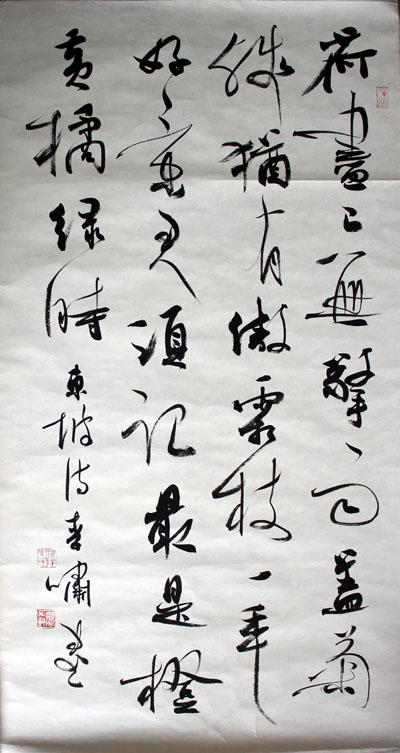 荷盡已無擎雨蓋菊
殘猶有傲霜枝一年
好景君須記最是橙
黃橘綠時 東坡詩 春嘯